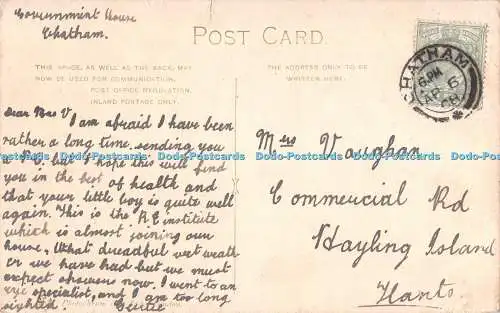 Government House
Chatham.
POST CARD.
THIS SPACE, AS WELL AS THE BACK, MAY
NOW BE USED FOR COMMUNICATION.
POST OFFICE REGULATION.
INLAND POSTAGE ONLY.
THE ADDRESS ONLY TO BE
WRITTEN HERE.
CHATHAM
6 PM
AP 6
Dear Mrs V. I am afraid I have been
rather a long time, sending you
a P.C. but I hope this will find
you in the best of health and
that your little boy is quite well
again. This is the R.E institute
which is almost joining our
house, What dreadful wet weath
er we have had but we must
expect showers now. I went to an
eye specialist, and I am too long
sighted. Gertie
Mrs Vaughan
Commercial Rd
Hayling Island
Hants
Dodo-Postcards Dodo-Postcards Dodo-Postcards Dodo-Postcards Dodo-Postcards